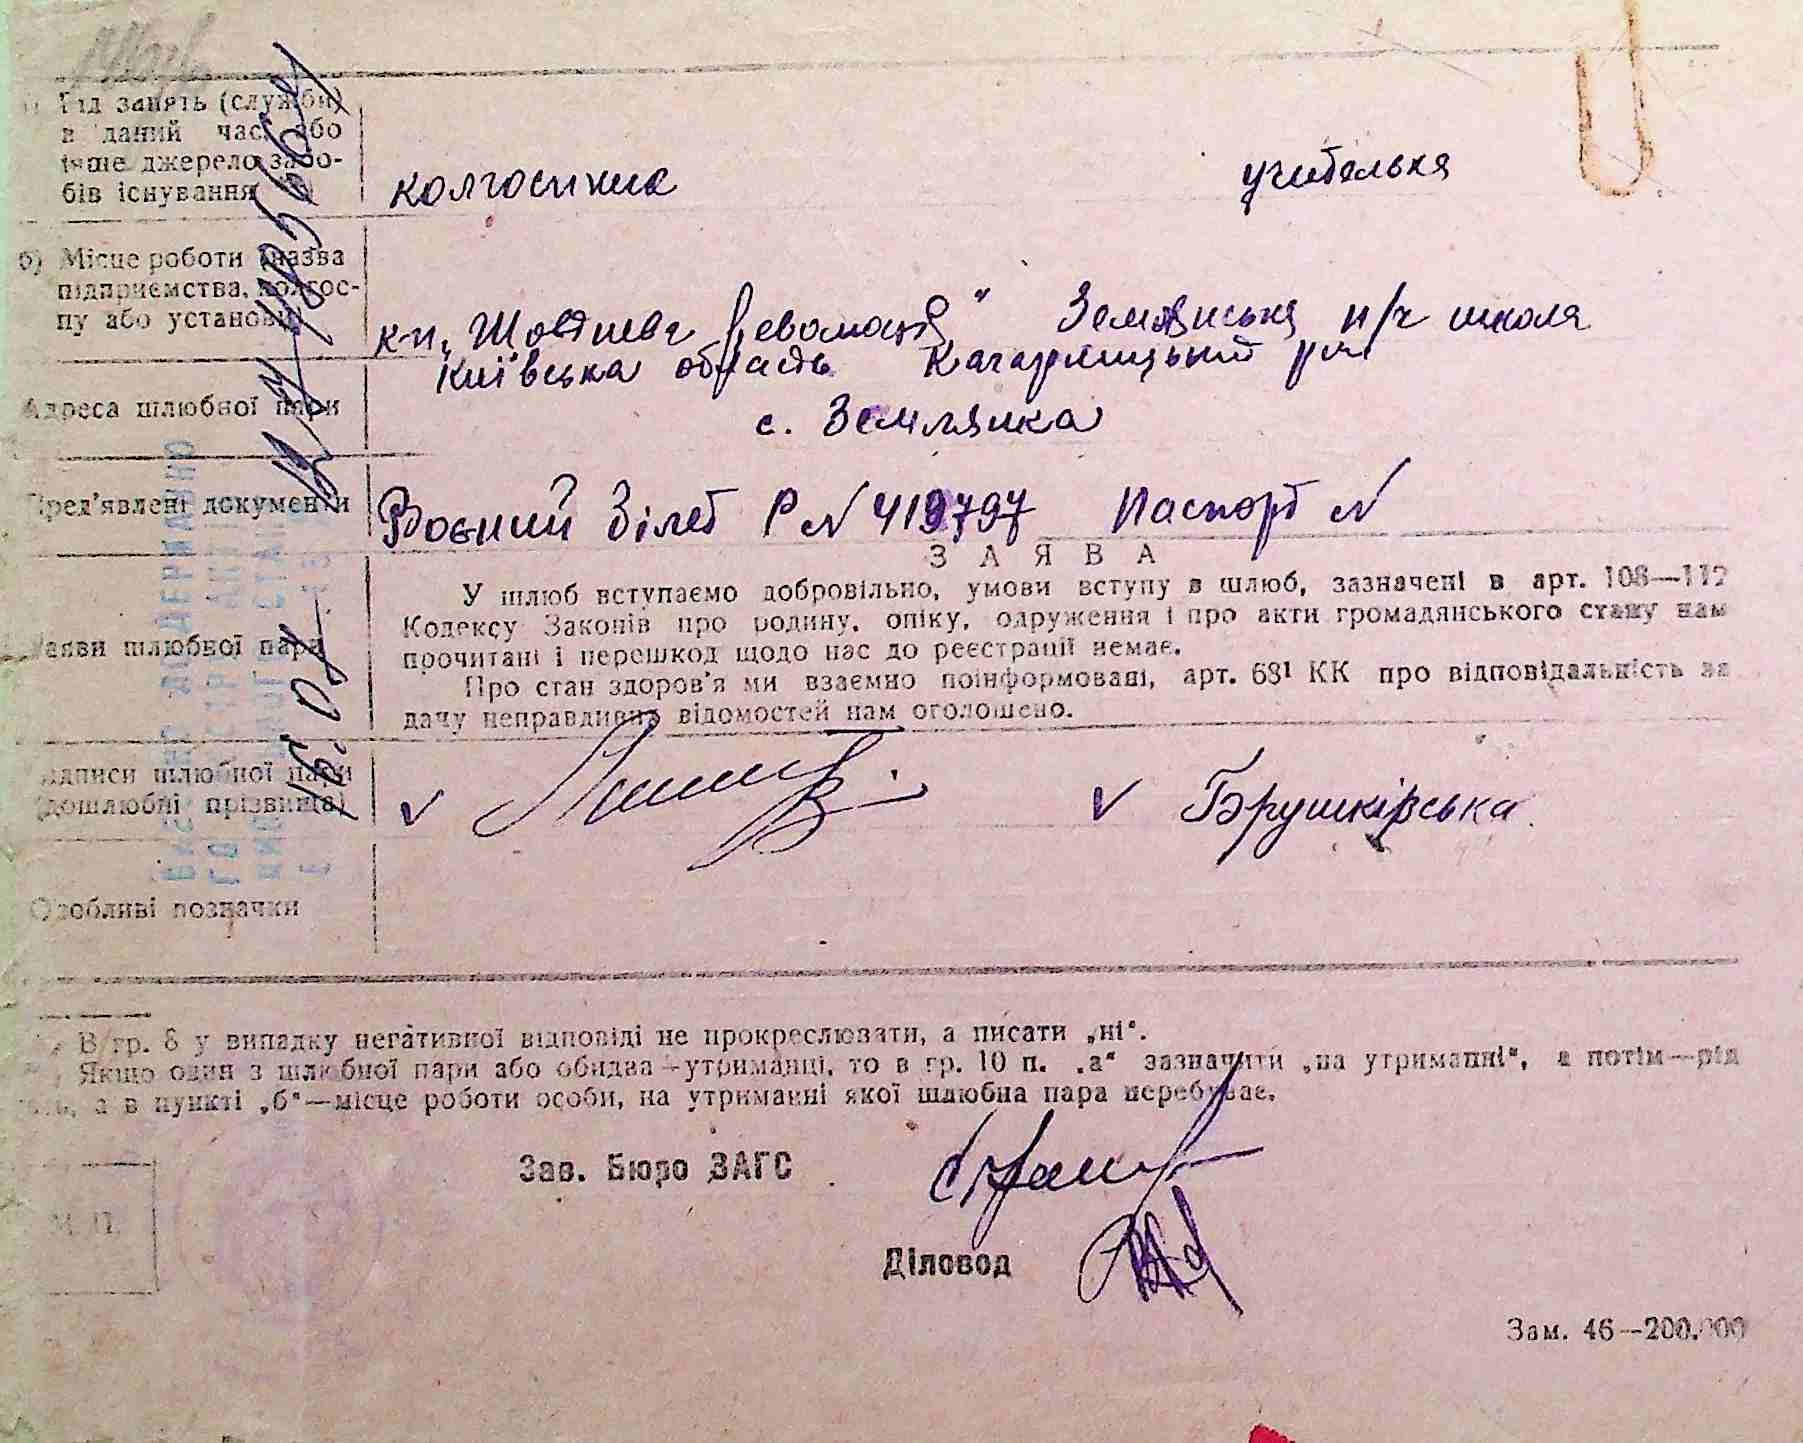 а) Рід занять (служби)
в даний час, або
інше джерело засо-
бів існування
колгоспник
учителька
б) Місце роботи (назва
підприємства, колгос-
пу або установи)
к-п „Жовтнева Революція" Землянська п/ч школа
Адреса шлюбної пари
Київська область Кагарлицький р-н
с. Землянка
Пред'явлені документи
Воєний білет Р № 419797 Паспорт №
ЗАЯВА
Заяви шлюбної пари
У шлюб вступаємо добровільно, умови вступу в шлюб, зазначені в арт. 108—112
Кодексу Законів про родину, опіку, одруження і про акти громадянського стану нам
прочитані і перешкод щодо нас до реєстрації немає.
Про стан здоров'я ми взаємно поінформовані, арт. 68¹ КК про відповідальність за
дачу неправдивих відомостей нам оголошено.
Підписи шлюбної пари
(дошлюбні прізвища)
Брушківська
Особливі позначки
В гр. 8 у випадку негативної відповіді не прокреслювати, а писати „ні“.
Якщо один з шлюбної пари або обидва—утриманці, то в гр. 10 п. „а“ зазначити „на утриманні“, а потім—рід
а в пункті „б“—місце роботи особи, на утриманні якої шлюбна пара перебуває.
Зав. Бюро ЗАГС
М. П.
Діловод
Зам. 46—200.000